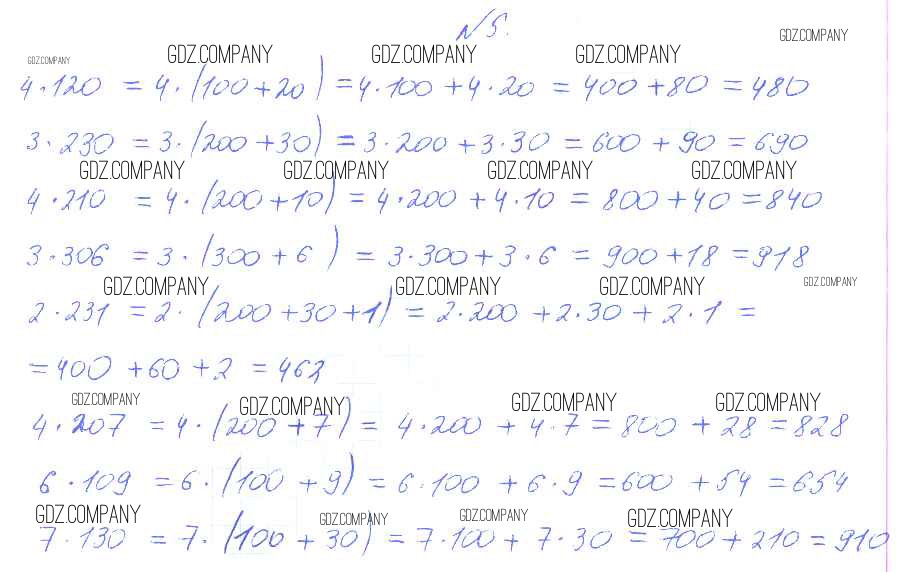 №5.
GDZ.COMPANY
GDZ.COMPANY GDZ.COMPANY GDZ.COMPANY GDZ.COMPANY
4·120 = 4·(100+20) = 4·100+4·20 = 400+80 = 480
3·230 = 3·(200+30) = 3·200+3·30 = 600+90 = 690
GDZ.COMPANY GDZ.COMPANY GDZ.COMPANY GDZ.COMPANY
4·210 = 4·(200+10) = 4·200+4·10 = 800+40 = 840
3·306 = 3·(300+6) = 3·300+3·6 = 900+18 = 918
GDZ.COMPANY GDZ.COMPANY GDZ.COMPANY GDZ.COMPANY
2·231 = 2·(200+30+1) = 2·200+2·30+2·1 =
=400+60+2 = 462
GDZ.COMPANY GDZ.COMPANY GDZ.COMPANY GDZ.COMPANY
4·207 = 4·(200+7) = 4·200+4·7 = 800+28 = 828
6·109 = 6·(100+9) = 6·100+6·9 = 600+54 = 654
GDZ.COMPANY GDZ.COMPANY GDZ.COMPANY GDZ.COMPANY
7·130 = 7·(100+30) = 7·100+7·30 = 700+210 = 910